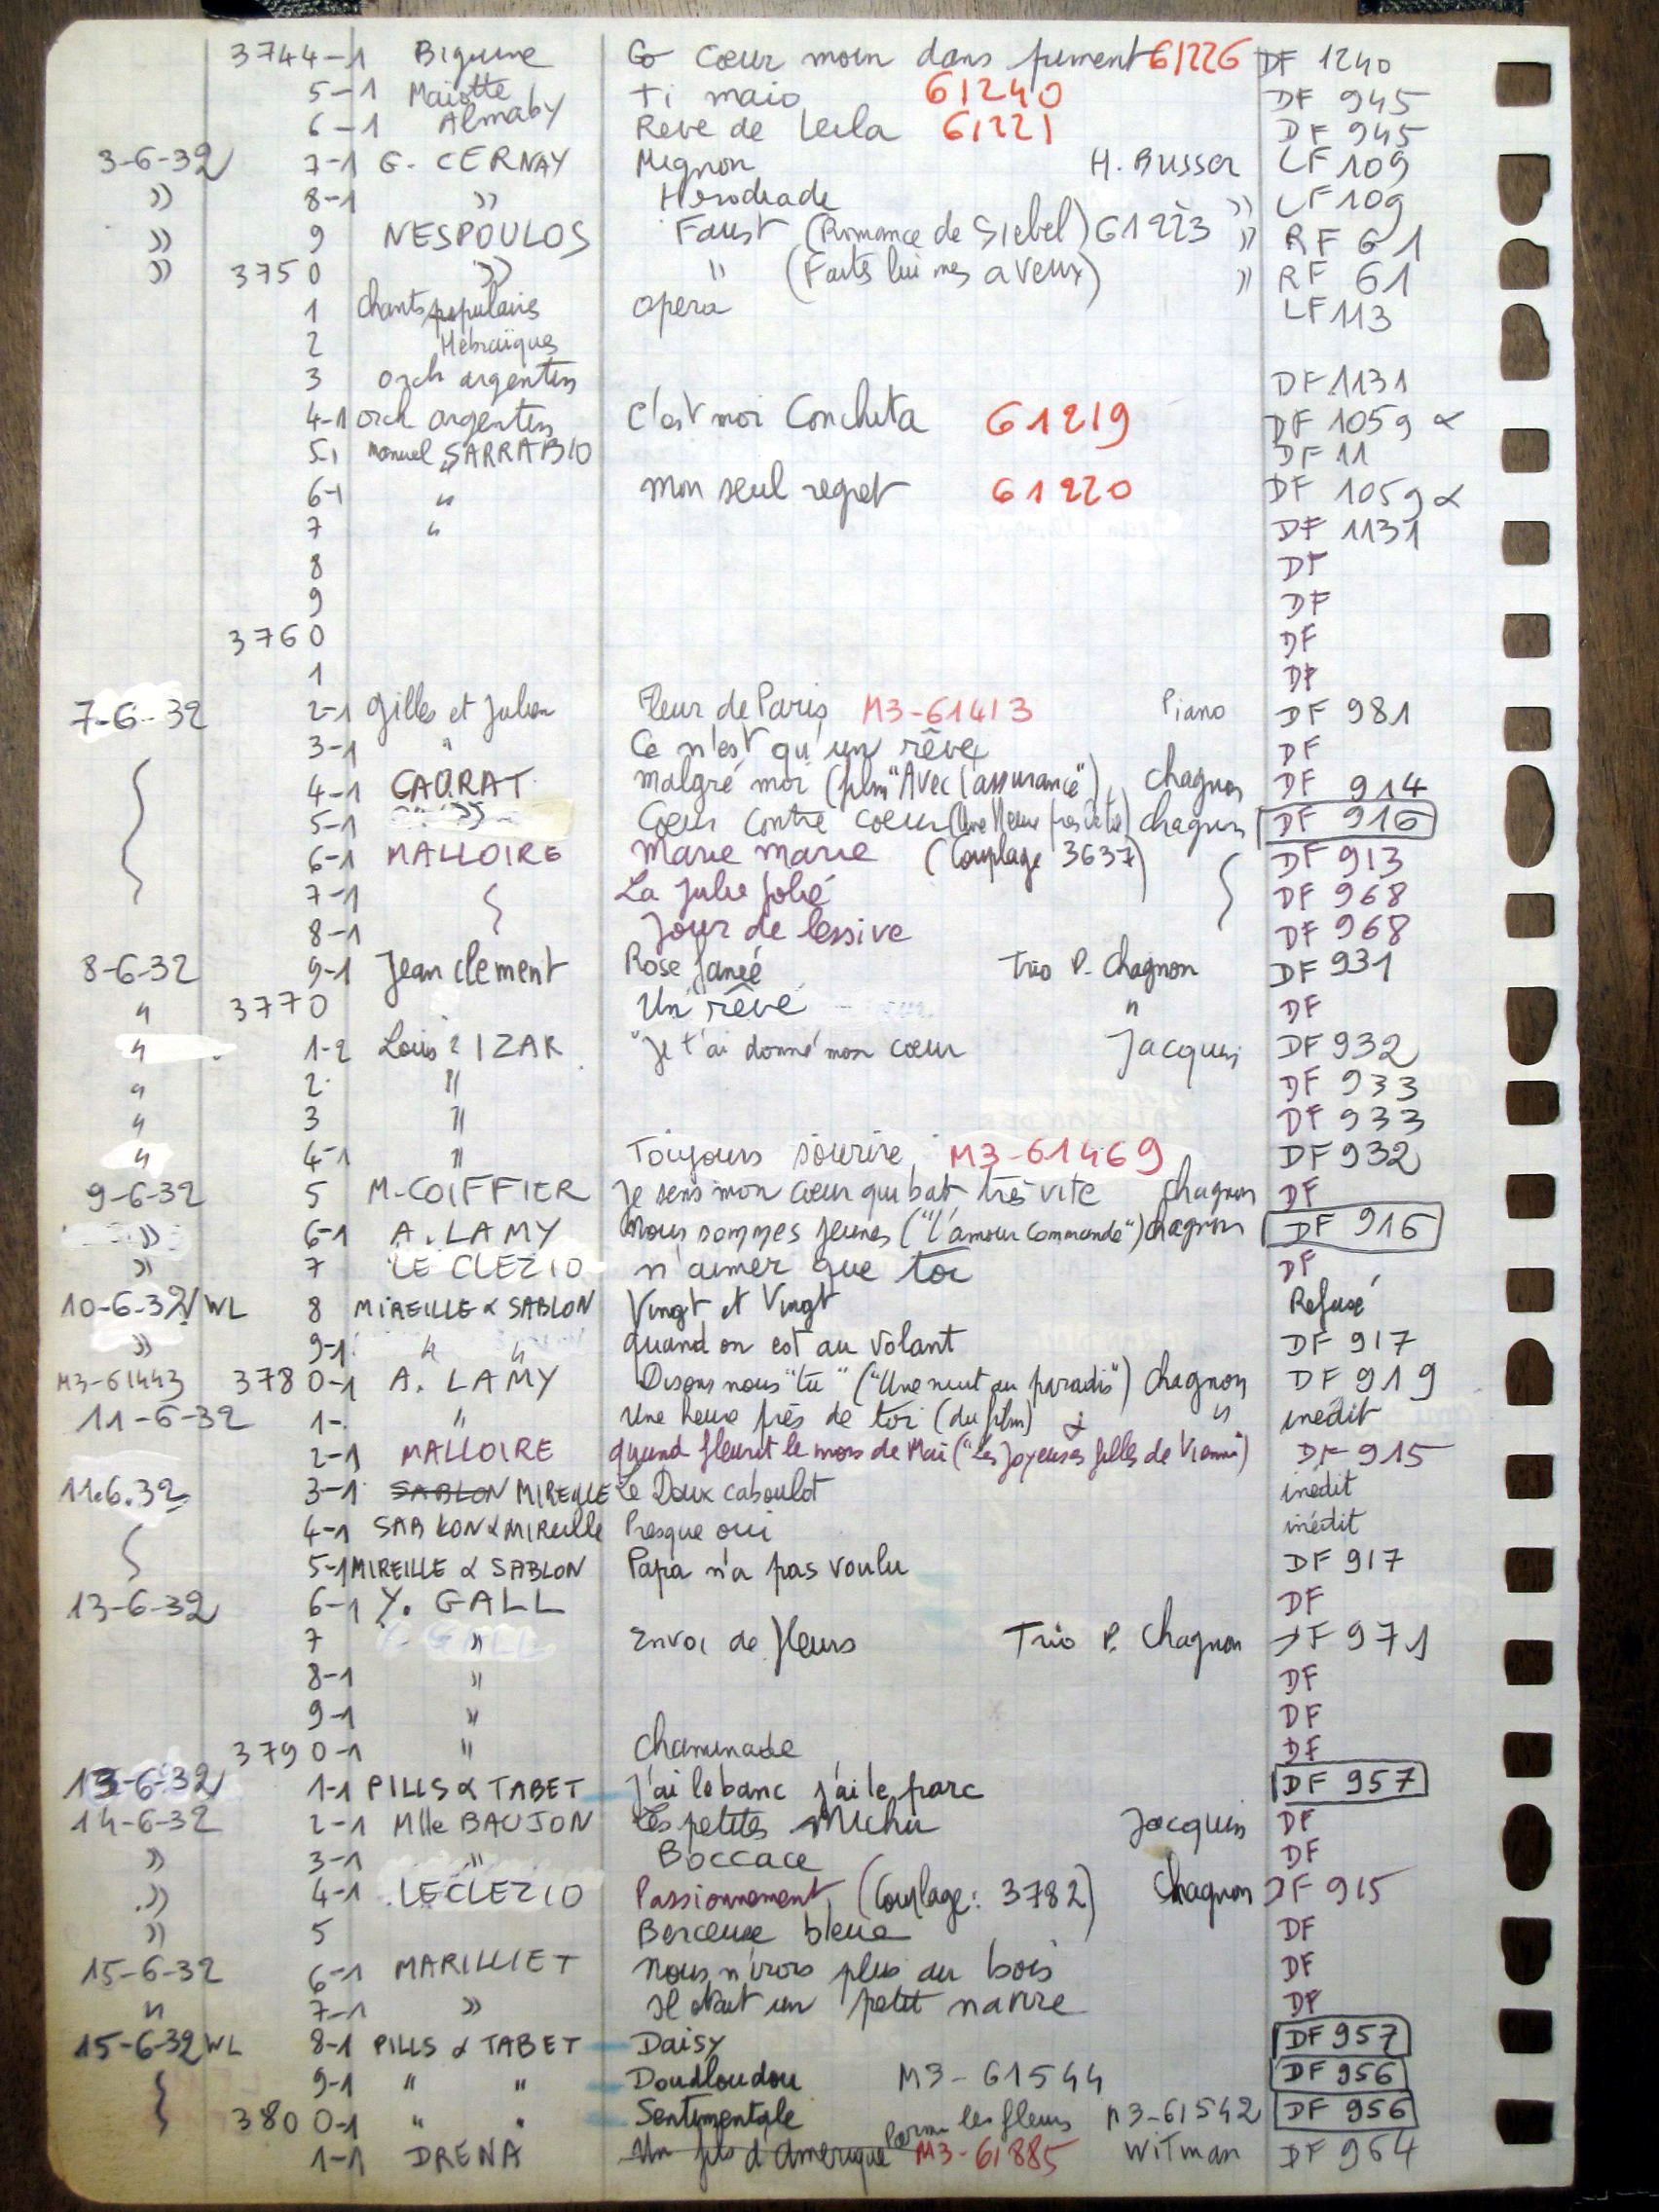 3744-1 Biguine Go cœur moin dans 61226 DF 1240
5-1 Maiotte Ti maio 61240 DF 945
6-1 Almaby Reve de Leila 61221 DF 945
3-6-32 7-1 G. CERNAY Mignon H. Busser LF 109
» 8-1 » Herodiade » LF 109
» 9 NESPOULOS Faust (Romance de Siebel) 61223 » RF 61
» 3750 » " (Faites lui mes aveux) » RF 61
1 chants populaires opera LF 113
2 Hébraïques
3 orch argentin DF 1131
4-1 orch argentin C'est moi Conchita 61219 DF 1059 α
5-1 Manuel SARRABLO DF 11
6-1 " mon seul regret 61220 DF 1059 α
7 " DF 1131
8 DF
9 DF
3760 DF
1 DF
7-6-32 2-1 Gilles et Julien Fleur de Paris M3-61413 Piano DF 981
3-1 " Ce n'est qu'un rêve DF
4-1 CAORAT malgré moi (film "Avec l'assurance") chagnon DF 914
5-1 » Coeur contre coeur chagnon DF 916
6-1 MALLOIRE Marie marie (Couplage 3637) DF 913
7-1 La Julie jolie DF 968
8-1 Jour de lessive DF 968
8-6-32 9-1 Jean Clement Rose fanée Trio P. Chagnon DF 931
" 3770 Un rêve " DF
" 1-2 Louis IZAR "Je t'ai donné mon cœur Jacquin DF 932
" 2 " DF 933
" 3 " DF 933
" 4-1 " Toujours sourire M3-61469 DF 932
9-6-32 5 M. COIFFIER Je sens mon cœur qui bat très vite chagnon DF
» 6-1 A. LAMY Nous sommes jeunes ("L'amour commande") chagnon DF 916
» 7 LE CLEZIO n'aimer que toi DF
10-6-32 WL 8 MIREILLE & SABLON Vingt et Vingt Refusé
» 9-1 " " quand on est au volant DF 917
M3-61443 3780-1 A. LAMY Disons nous "tu" ("Une nuit au paradis") chagnon DF 919
11-6-32 1- " Une heure près de toi (du film) " inédit
2-1 MALLOIRE quand fleurit le mois de Mai ("Les joyeuses filles de Vienne") DF 915
11.6.32 3-1 SABLON MIREILLE Le Doux caboulot inédit
4-1 SABLON & MIREILLE Presque oui inédit
5-1 MIREILLE & SABLON Papa n'a pas voulu DF 917
13-6-32 6-1 Y. GALL DF
7 » Envoi de fleurs Trio P. Chagnon DF 971
8-1 » DF
9-1 » DF
3790-1 " Chaminade DF
13-6-32 1-1 PILLS & TABET J'ai le banc j'ai le parc DF 957
14-6-32 2-1 Mlle BAUJON Les petites Michu Jacquin DF
» 3-1 " Boccace DF
» 4-1 LECLEZIO Passionnement (Couplage : 3782) Chagnon DF 915
» 5 Berceuse bleue DF
15-6-32 6-1 MARILLIET Nous n'irons plus au bois DF
" 7-1 » Il était un petit navire DF
15-6-32 WL 8-1 PILLS & TABET Daisy DF 957
9-1 " " Doudloudou M3-61544 DF 956
3800-1 " " Sentimentale M3-61542 DF 956
1-1 DRENA Un fils d'Amerique Parmi les fleurs M3-61885 Witman DF 964